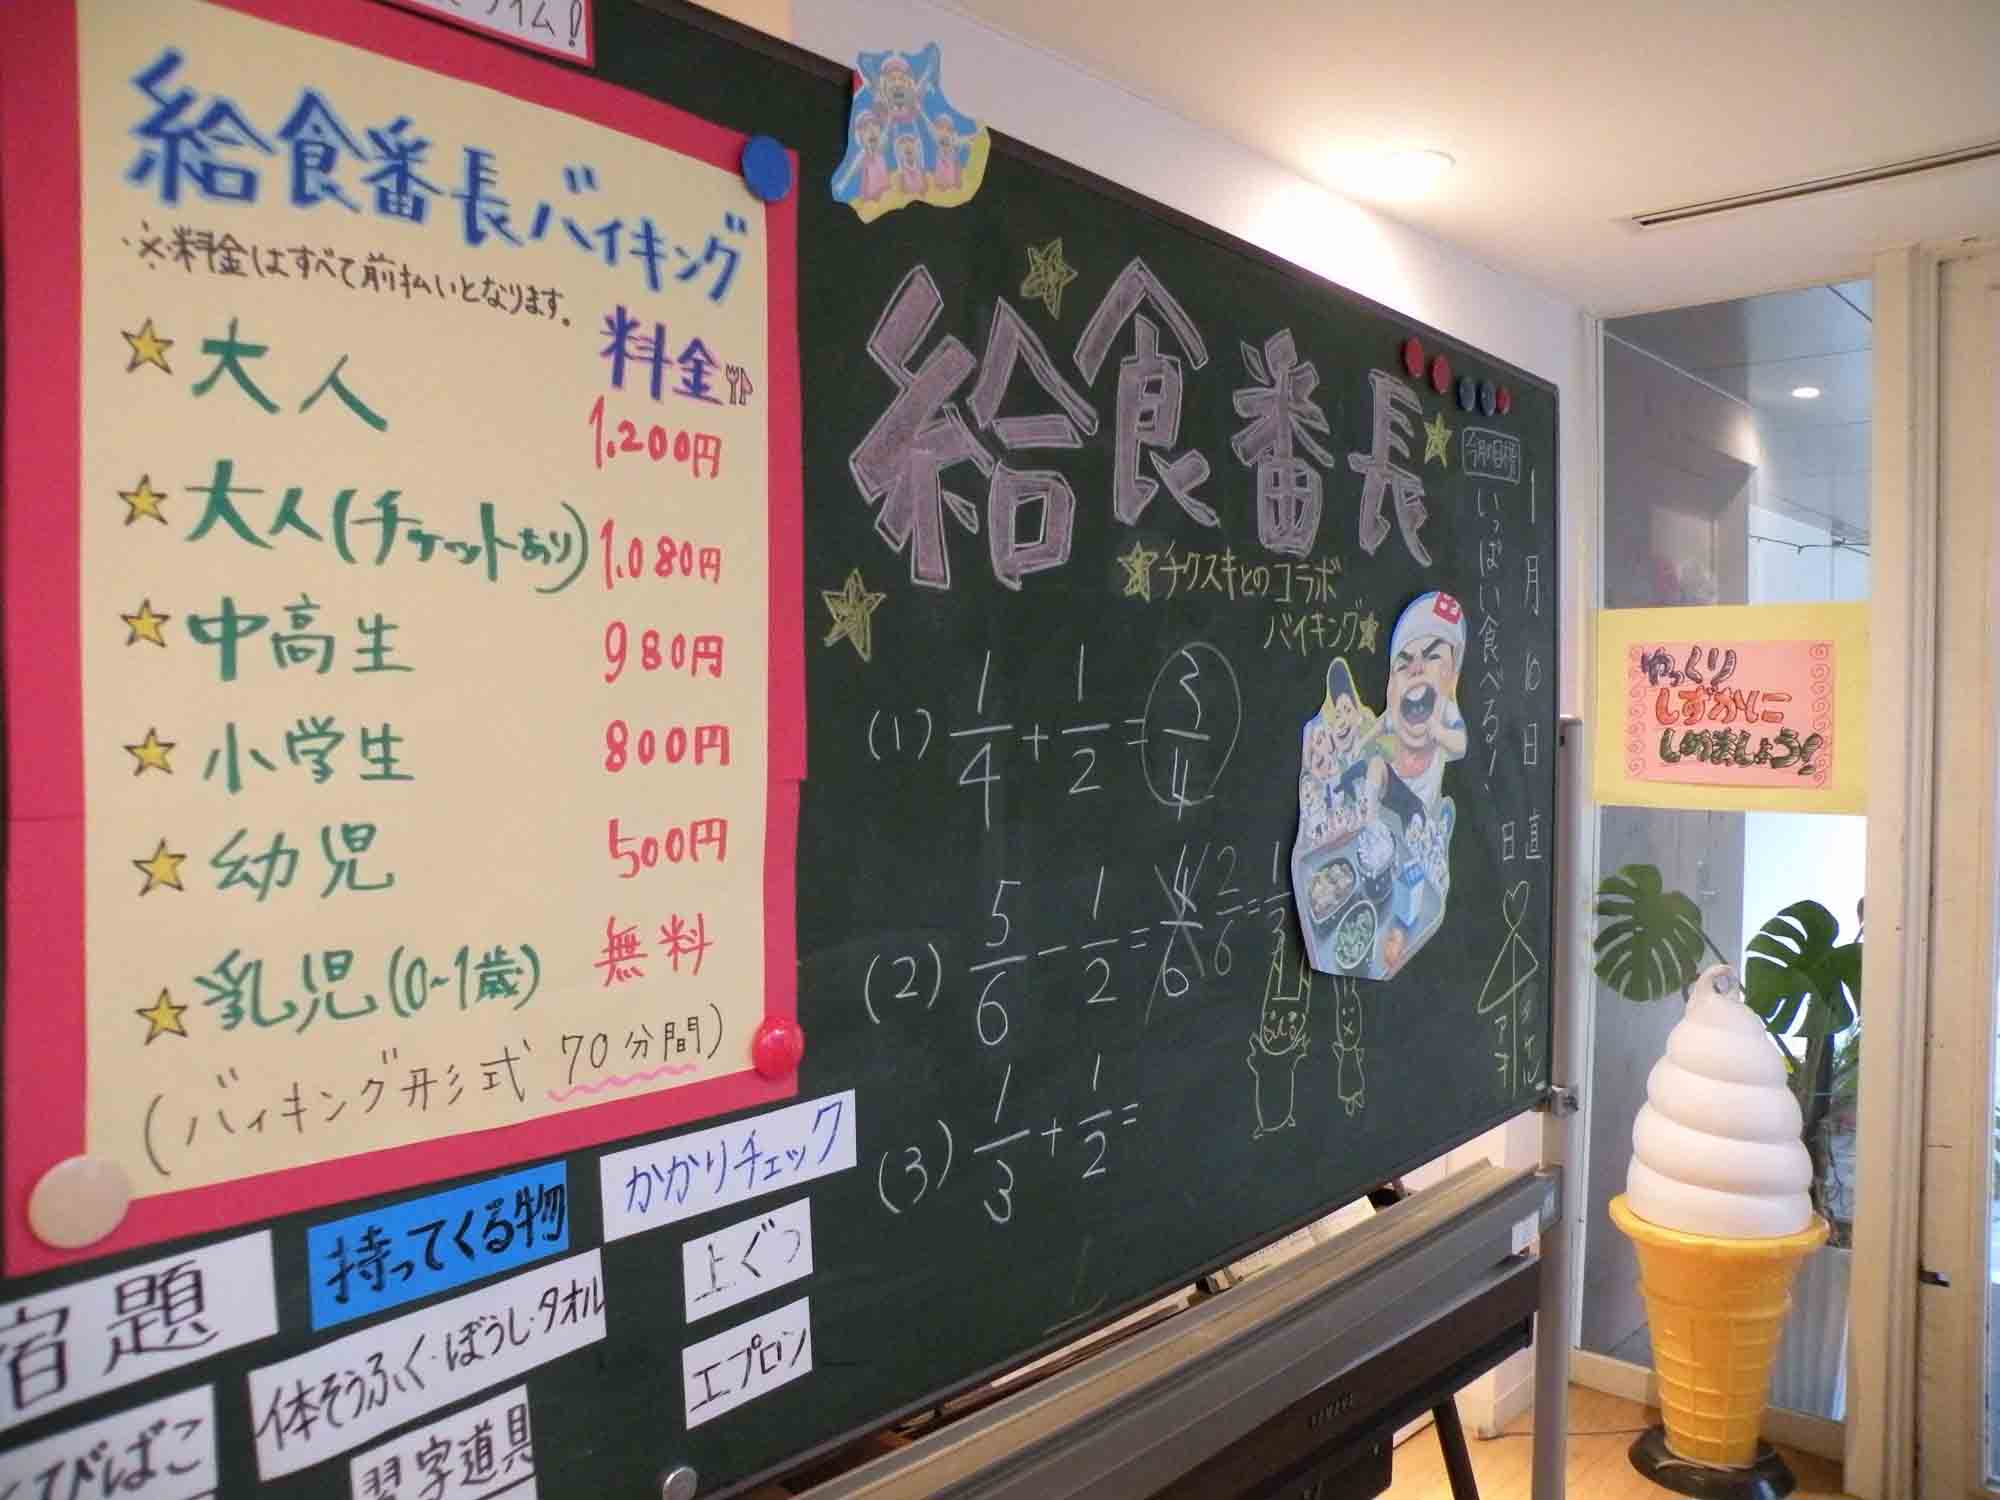 イム!
給食番長バイキング
※料金はすべて前払いとなります。
料金
大人 1.200円
大人(チケットあり) 1.080円
中高生 980円
小学生 800円
幼児 500円
乳児(0~1歳) 無料
(バイキング形式 70分間)
宿題
持ってくる物
かかりチェック
体そうふく・ぼうし・タオル
上ぐつ
エプロン
習字道具
給食番長
チクスキとのコラボ
バイキング
(1) 1/4 + 1/2 = 3/4
(2) 5/6 - 1/2 = 4/6 2/6 = 1/3
(3) 1/3 + 1/2 =
1月10日
今月の目標
いっぱい食べる!
日直
アキ
ゆっくり
しずかに
しめましょう!